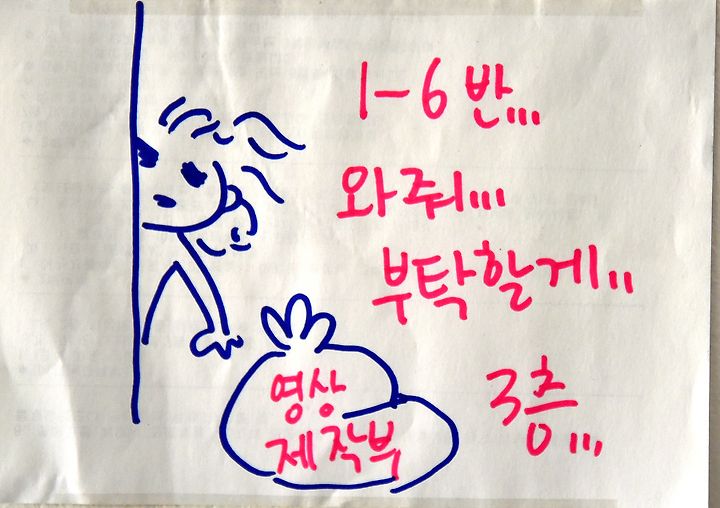 1-6 반,,,
와줘,,,
부탁할게,,,
3층,,,
영상
제작부